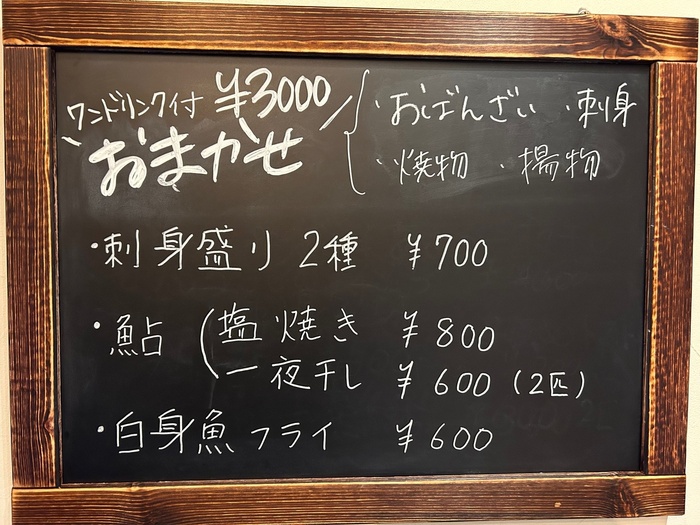 ワンドリンク付 ¥3000
おまかせ
・おばんざい ・刺身
・焼物 ・揚物
・刺身盛り 2種 ¥700
・鮎 (塩焼き ¥800
一夜干し ¥600 (2匹)
・白身魚フライ ¥600